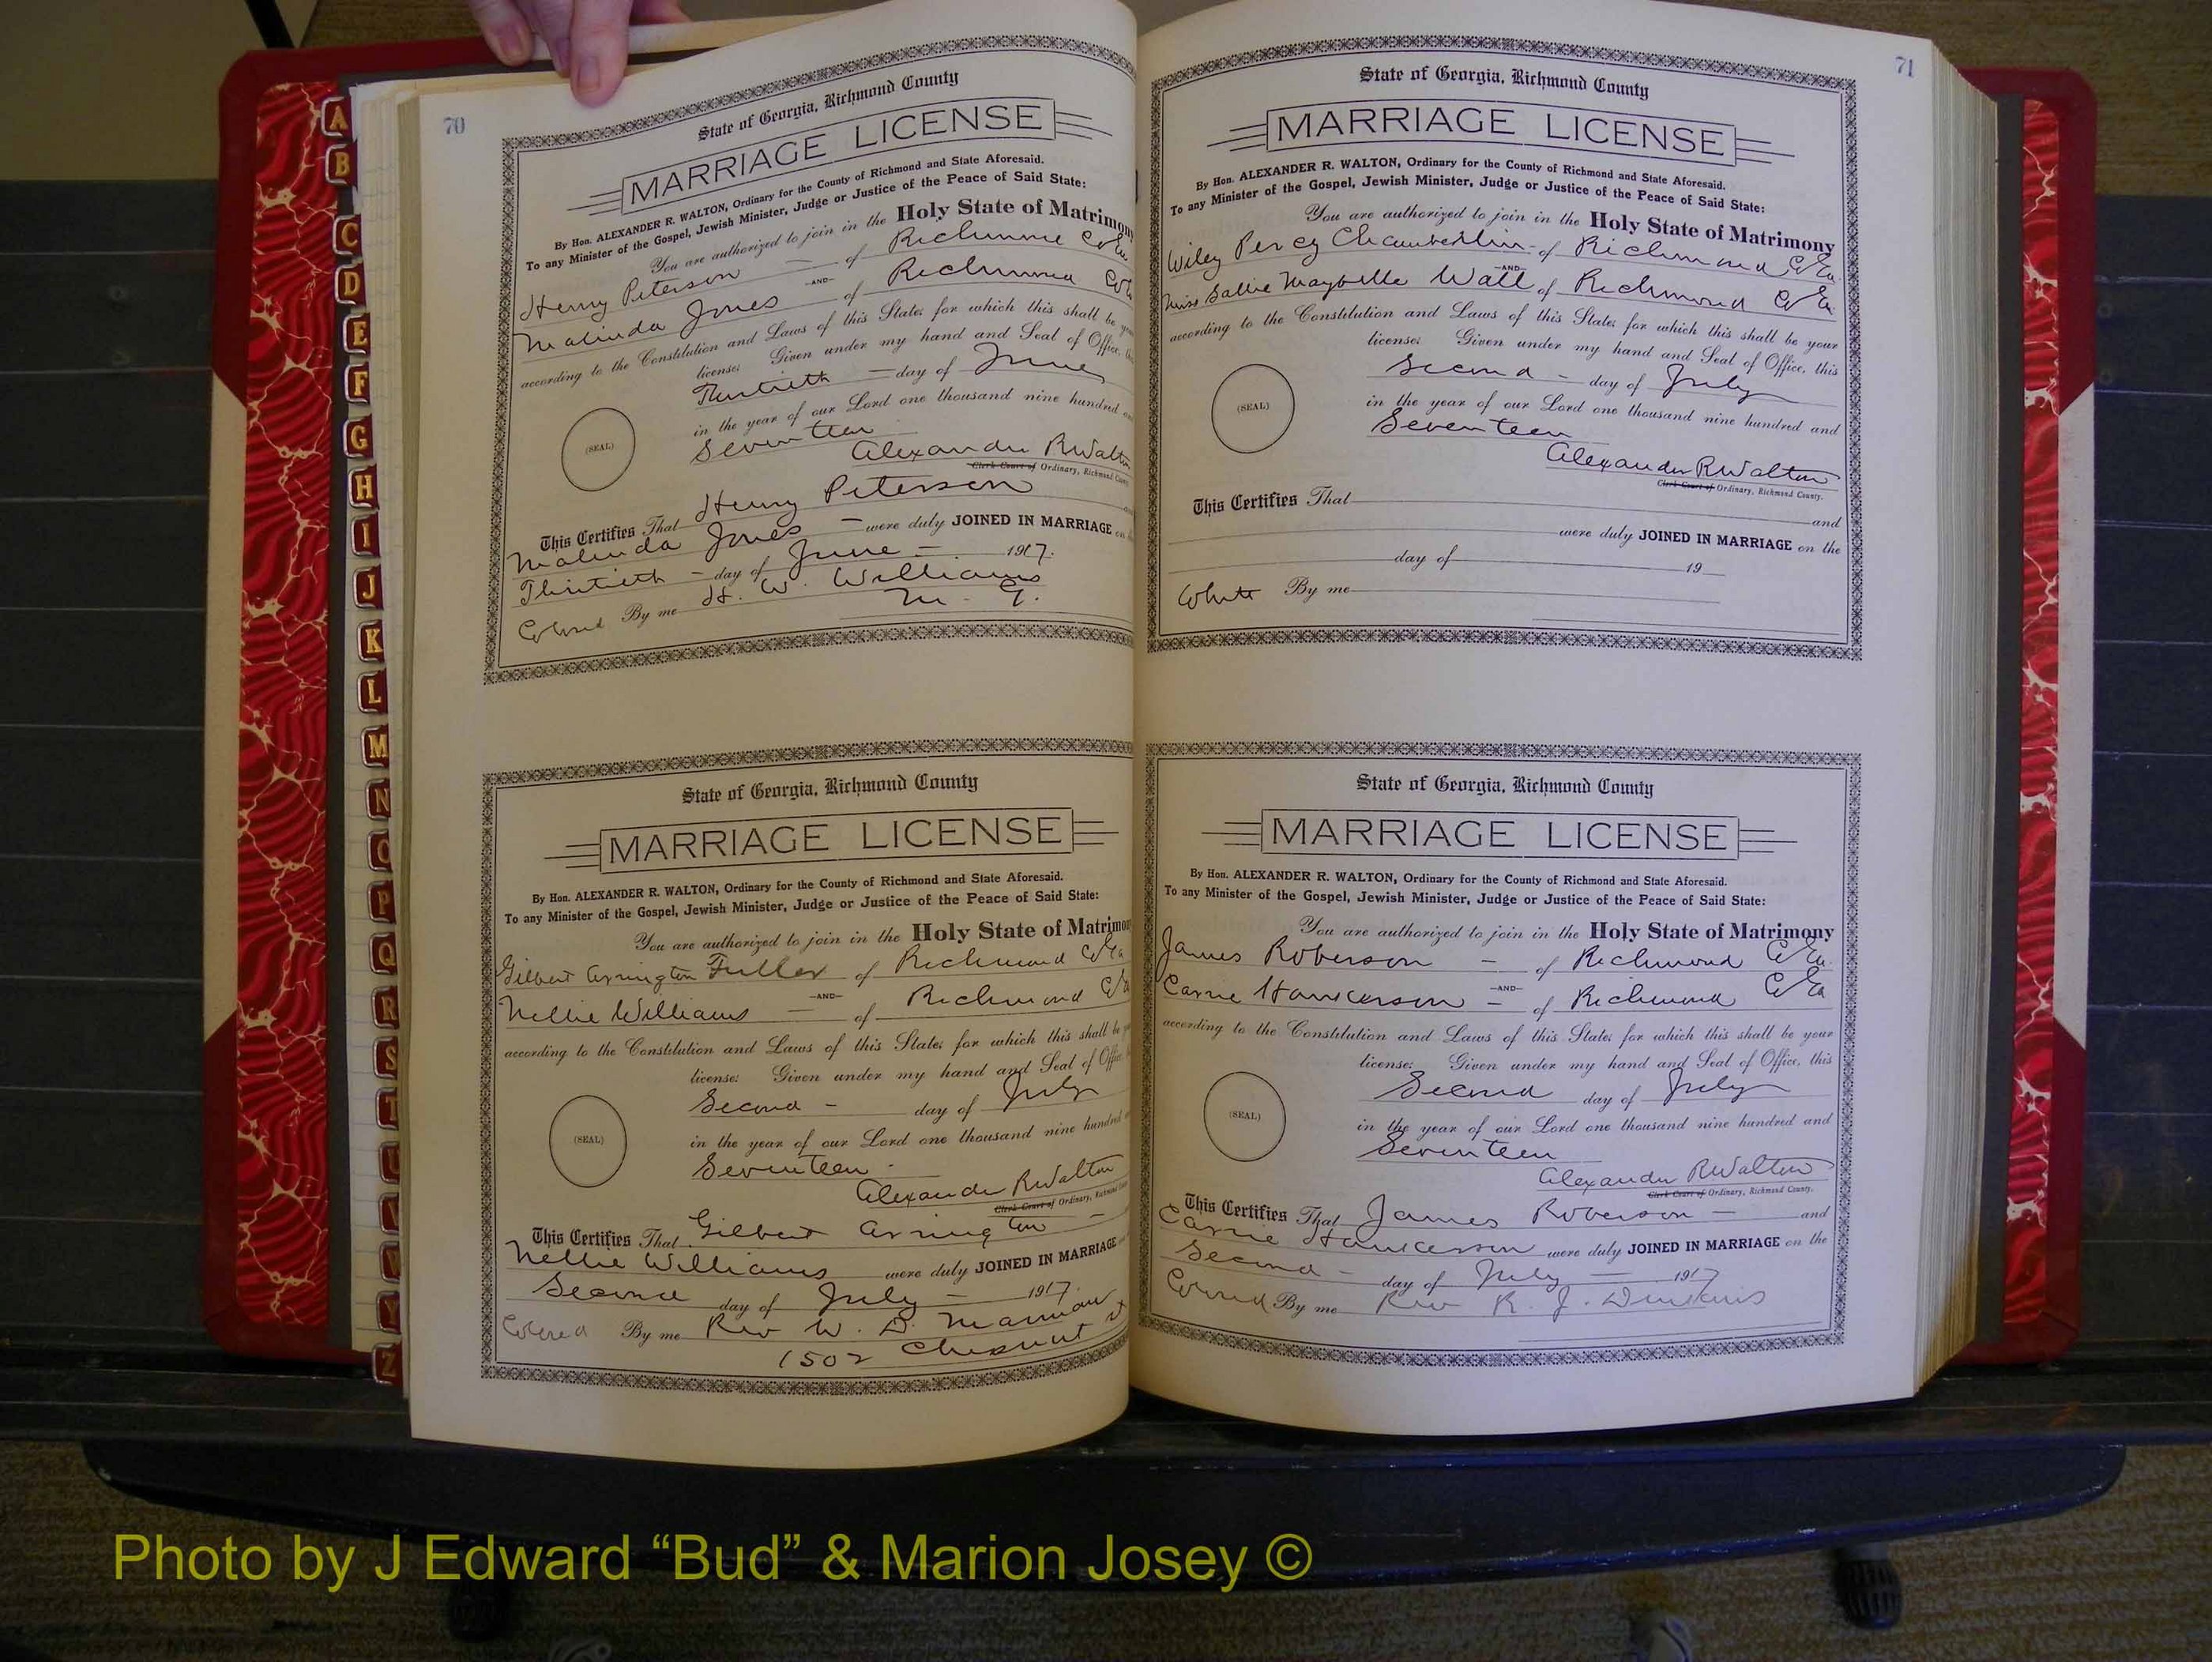 70
State of Georgia, Richmond County
MARRIAGE LICENSE
By Hon. ALEXANDER R. WALTON, Ordinary for the County of Richmond and State Aforesaid.
To any Minister of the Gospel, Jewish Minister, Judge or Justice of the Peace of Said State:
You are authorized to join in the Holy State of Matrimony
Henry Peterson — of Richmond Co Ga
-AND-
Malinda Jones of Richmond Co
according to the Constitution and Laws of this State; for which this shall be
license: Given under my hand and Seal of Office,
Thirtieth — day of June
in the year of our Lord one thousand nine hundred
(SEAL)
Seventeen
Alexander R Walton
Clerk Court of Ordinary, Richmond County
This Certifies That Henry Peterson
Malinda Jones — were duly JOINED IN MARRIAGE on
Thirtieth — day of June — 1917.
Colored By me H. W. Williams
M. G.
State of Georgia, Richmond County
MARRIAGE LICENSE
By Hon. ALEXANDER R. WALTON, Ordinary for the County of Richmond and State Aforesaid.
To any Minister of the Gospel, Jewish Minister, Judge or Justice of the Peace of Said State:
You are authorized to join in the Holy State of Matrimony
Gilbert Arrington Fuller of Richmond Co Ga
-AND-
Nellie Williams — of Richmond Co Ga
according to the Constitution and Laws of this State; for which this shall be
license: Given under my hand and Seal of Office
Second — day of July
(SEAL)
in the year of our Lord one thousand nine hundred
Seventeen
Alexander R Walton
Clerk Court of Ordinary, Richmond
This Certifies That Gilbert Arrington —
Nellie Williams were duly JOINED IN MARRIAGE
Second day of July — 1917.
Colored By me Rev W. D.
1502 Chesnut St
71
State of Georgia, Richmond County
MARRIAGE LICENSE
By Hon. ALEXANDER R. WALTON, Ordinary for the County of Richmond and State Aforesaid.
To any Minister of the Gospel, Jewish Minister, Judge or Justice of the Peace of Said State:
You are authorized to join in the Holy State of Matrimony
Wiley Percy Chamberlin — of Richmond Co Ga.
-AND-
Miss Sallie Maybelle Wall of Richmond Co Ga.
according to the Constitution and Laws of this State; for which this shall be your
license: Given under my hand and Seal of Office, this
Second — day of July
(SEAL)
in the year of our Lord one thousand nine hundred and
Seventeen
Alexander R Walton
Clerk Court of Ordinary, Richmond County.
This Certifies That and
were duly JOINED IN MARRIAGE on the
day of 19
White By me
State of Georgia, Richmond County
MARRIAGE LICENSE
By Hon. ALEXANDER R. WALTON, Ordinary for the County of Richmond and State Aforesaid.
To any Minister of the Gospel, Jewish Minister, Judge or Justice of the Peace of Said State:
You are authorized to join in the Holy State of Matrimony
James Roberson — of Richmond Co Ga.
-AND-
Carrie Hankerson — of Richmond Co Ga
according to the Constitution and Laws of this State; for which this shall be your
license: Given under my hand and Seal of Office, this
Second day of July
(SEAL)
in the year of our Lord one thousand nine hundred and
Seventeen
Alexander R Walton
Clerk Court of Ordinary, Richmond County.
This Certifies That James Roberson — and
Carrie Hankerson were duly JOINED IN MARRIAGE on the
Second — day of July — 1917
Colored By me Rev R. J.
A
B
C
D
E
F
G
H
I
J
K
L
M
N
O
P
Q
R
S
T
U
V
W
Y
Z
Photo by J Edward “Bud” & Marion Josey ©